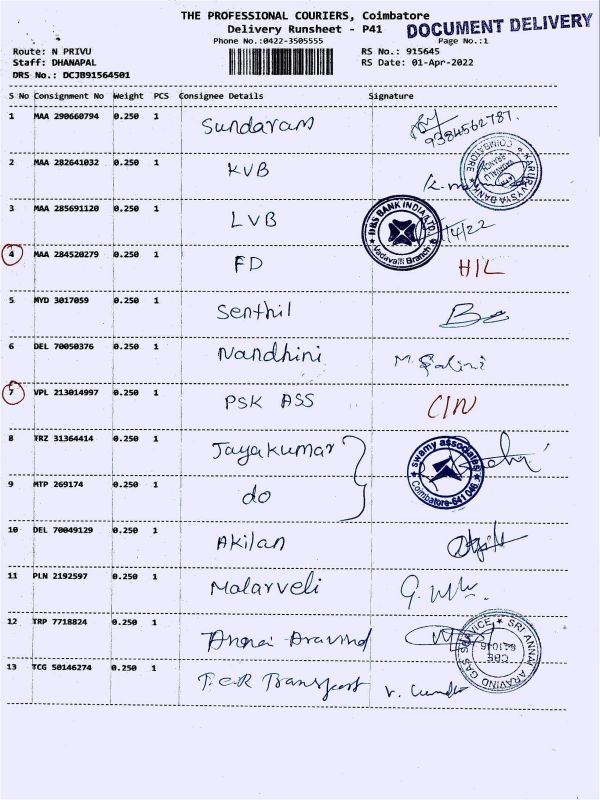 THE PROFESSIONAL COURIERS, Coimbatore
DOCUMENT DELIVERY
Delivery Runsheet - P41
Phone No.:0422-3505555 Page No.:1
Route: N PRIVU RS No.: 915645
Staff: DHANAPAL RS Date: 01-Apr-2022
DRS No.: DCJB91564501
S No Consignment No Weight PCS Consignee Details Signature
1 MAA 290660794 0.250 1 Sundaram 9384562787.
2 MAA 282641032 0.250 1 KVB KARUR VYSYA BANK COIMBATORE
3 MAA 285691120 0.250 1 LVB DBS BANK INDIA LTD Vadavalli Branch /4/22
4 MAA 284520279 0.250 1 FD HIL
5 MYD 3017059 0.250 1 Senthil
6 DEL 70050376 0.250 1 Nandhini M. Salini
7 VPL 213014997 0.250 1 PSK ASS CIN
8 TRZ 31364414 0.250 1 Jayakumar swamy associates Coimbatore-641 046
9 MTP 269174 0.250 1 do
10 DEL 70049129 0.250 1 Akilan
11 PLN 2192597 0.250 1 Malarveli
12 TRP 7718824 0.250 1 Annai Aravind SRI ANNAI ARAVIND GAS SERVICE CBE
13 TCG 50146274 0.250 1 Transport